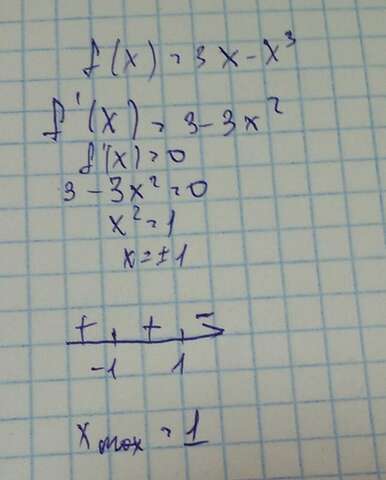 f(x) = 3x - x³
f'(x) = 3 - 3x²
f'(x) = 0
3 - 3x² = 0
x² = 1
x = ±1
+ + -
-1 1
x max = 1